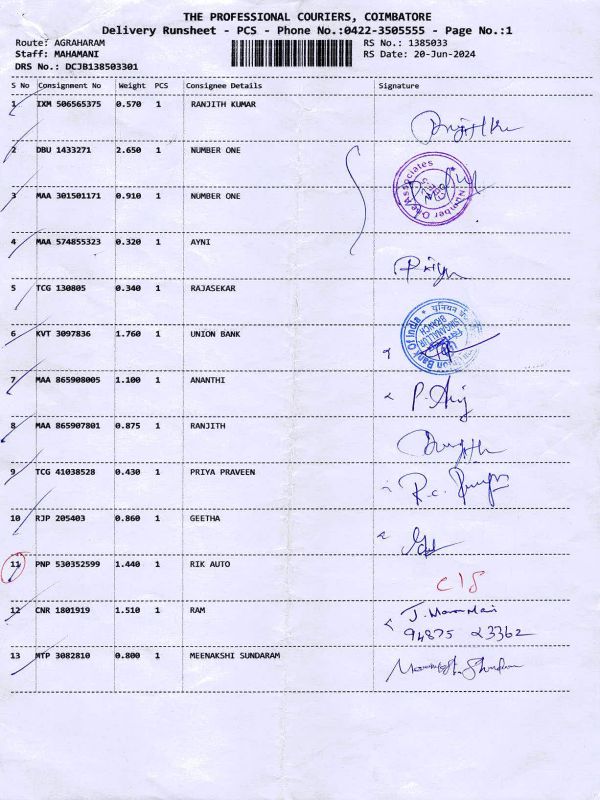 THE PROFESSIONAL COURIERS, COIMBATORE
Delivery Runsheet - PCS - Phone No.:0422-3505555 - Page No.:1
Route: AGRAHARAM RS No.: 1385033
Staff: MAHAMANI RS Date: 20-Jun-2024
DRS No.: DCJB138503301
S No Consignment No Weight PCS Consignee Details Signature
1 IXM 506565375 0.570 1 RANJITH KUMAR
2 DBU 1433271 2.650 1 NUMBER ONE
3 MAA 301501171 0.910 1 NUMBER ONE
Number One Associates
4 MAA 574855323 0.320 1 AYNI
Priya
5 TCG 130805 0.340 1 RAJASEKAR
6 KVT 3097836 1.760 1 UNION BANK
Union Bank Of India
SINGANALLUR
BRANCH
7 MAA 865908005 1.100 1 ANANTHI
8 MAA 865907801 0.875 1 RANJITH
9 TCG 41038528 0.430 1 PRIYA PRAVEEN
10 RJP 205403 0.860 1 GEETHA
11 PNP 530352599 1.440 1 RIK AUTO
12 CNR 1801919 1.510 1 RAM
94875 23362
13 MTP 3082810 0.800 1 MEENAKSHI SUNDARAM